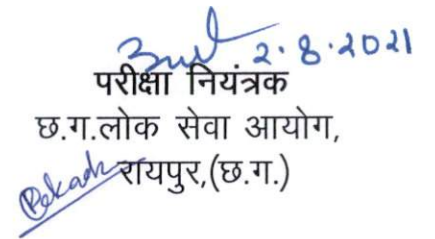 2.8.2021
परीक्षा नियंत्रक
छ.ग.लोक सेवा आयोग,
रायपुर,(छ.ग.)